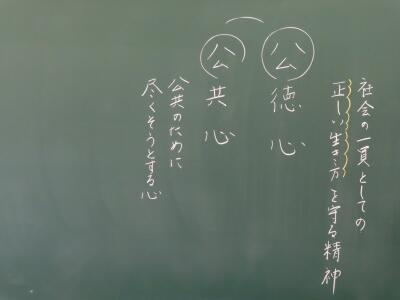 社会の一員としての
正しい生き方を守る精神
公徳心
公共心
公共のために
尽くそうとする心